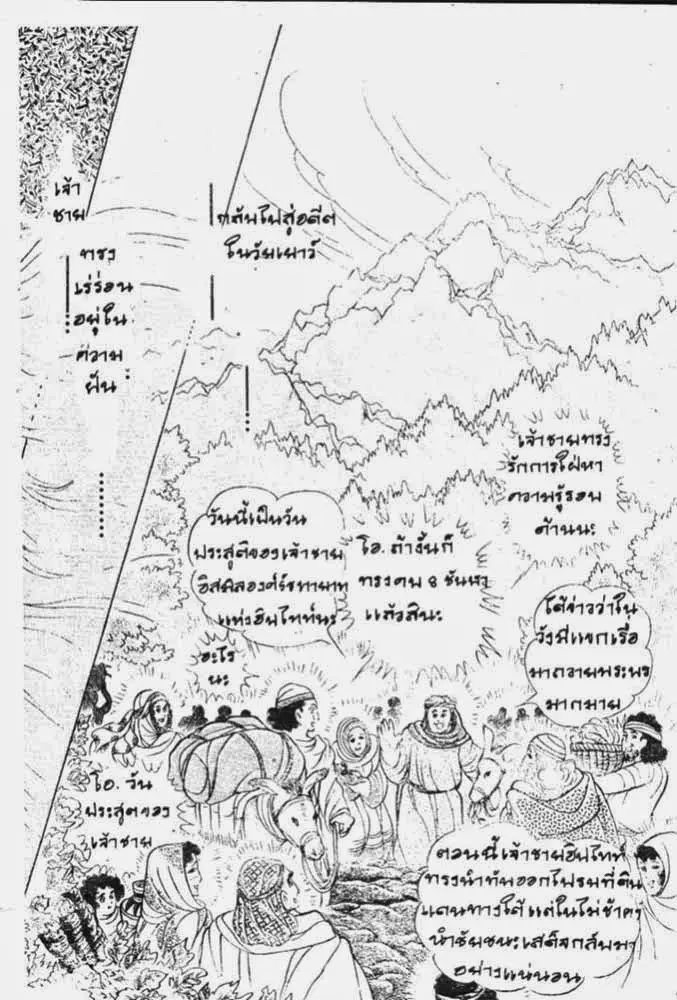 เจ้า
ชาย
ทรง
เร่ร่อน
อยู่ใน
ความ
ฝัน
กลับไปสู่อดีต
ในวัยเยาว์
เจ้าชายทรง
รักการใฝ่หา
ความรู้รอบ
ด้านนะ
วันนี้เป็นวัน
ประสูติของเจ้าชาย
อิสมิลองค์รัชทายาท
แห่งฮิบไทท์นะ
โอ. ถ้างั้นก็
ทรงครบ 8 ชันษา
แล้วสินะ
ได้ข่าวว่าใน
วังมีแขกเรื่อ
มาถวายพระพร
มากมาย
อะไร
นะ
โอ. วัน
ประสูตของ
เจ้าชาย
ตอนนี้เจ้าชายฮิบไทท์
ทรงนำทัพออกไปรบที่ดิน
แดนทางใต้ แต่ในไม่ช้าคง
นำชัยชนะเสด็จกลับมา
อย่างแน่นอน